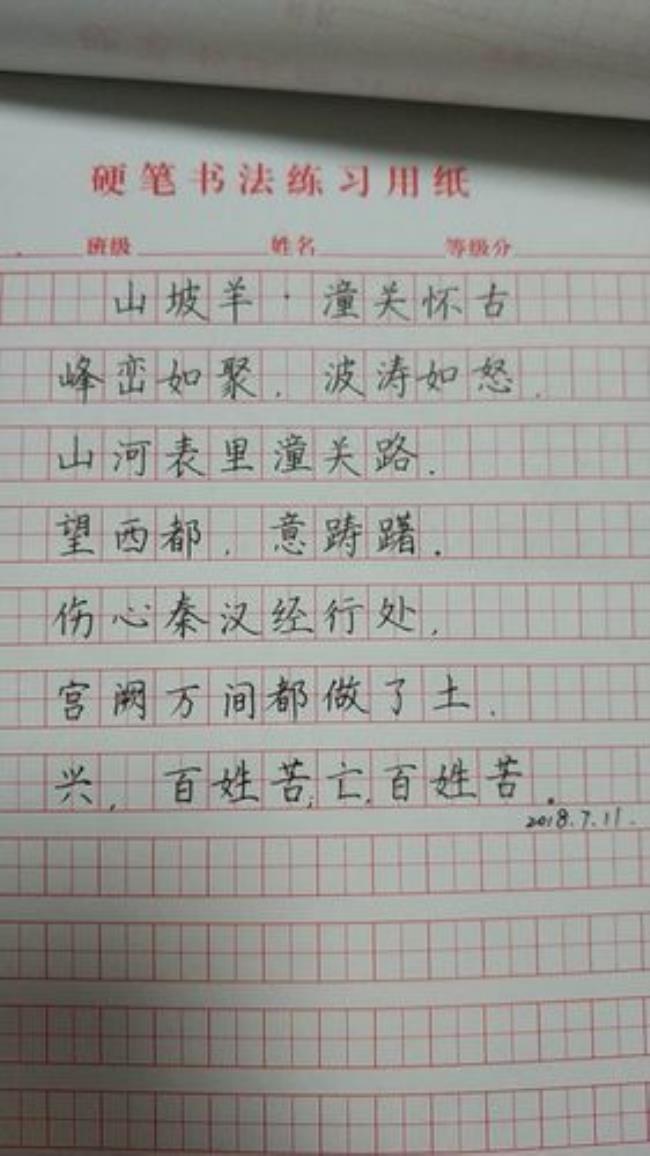 硬笔书法练习用纸
班级 姓名 等级分
山坡羊·潼关怀古
峰峦如聚，波涛如怒，
山河表里潼关路.
望西都，意踌躇.
伤心秦汉经行处，
宫阙万间都做了土.
兴，百姓苦;亡,百姓苦.
2018.7.11.